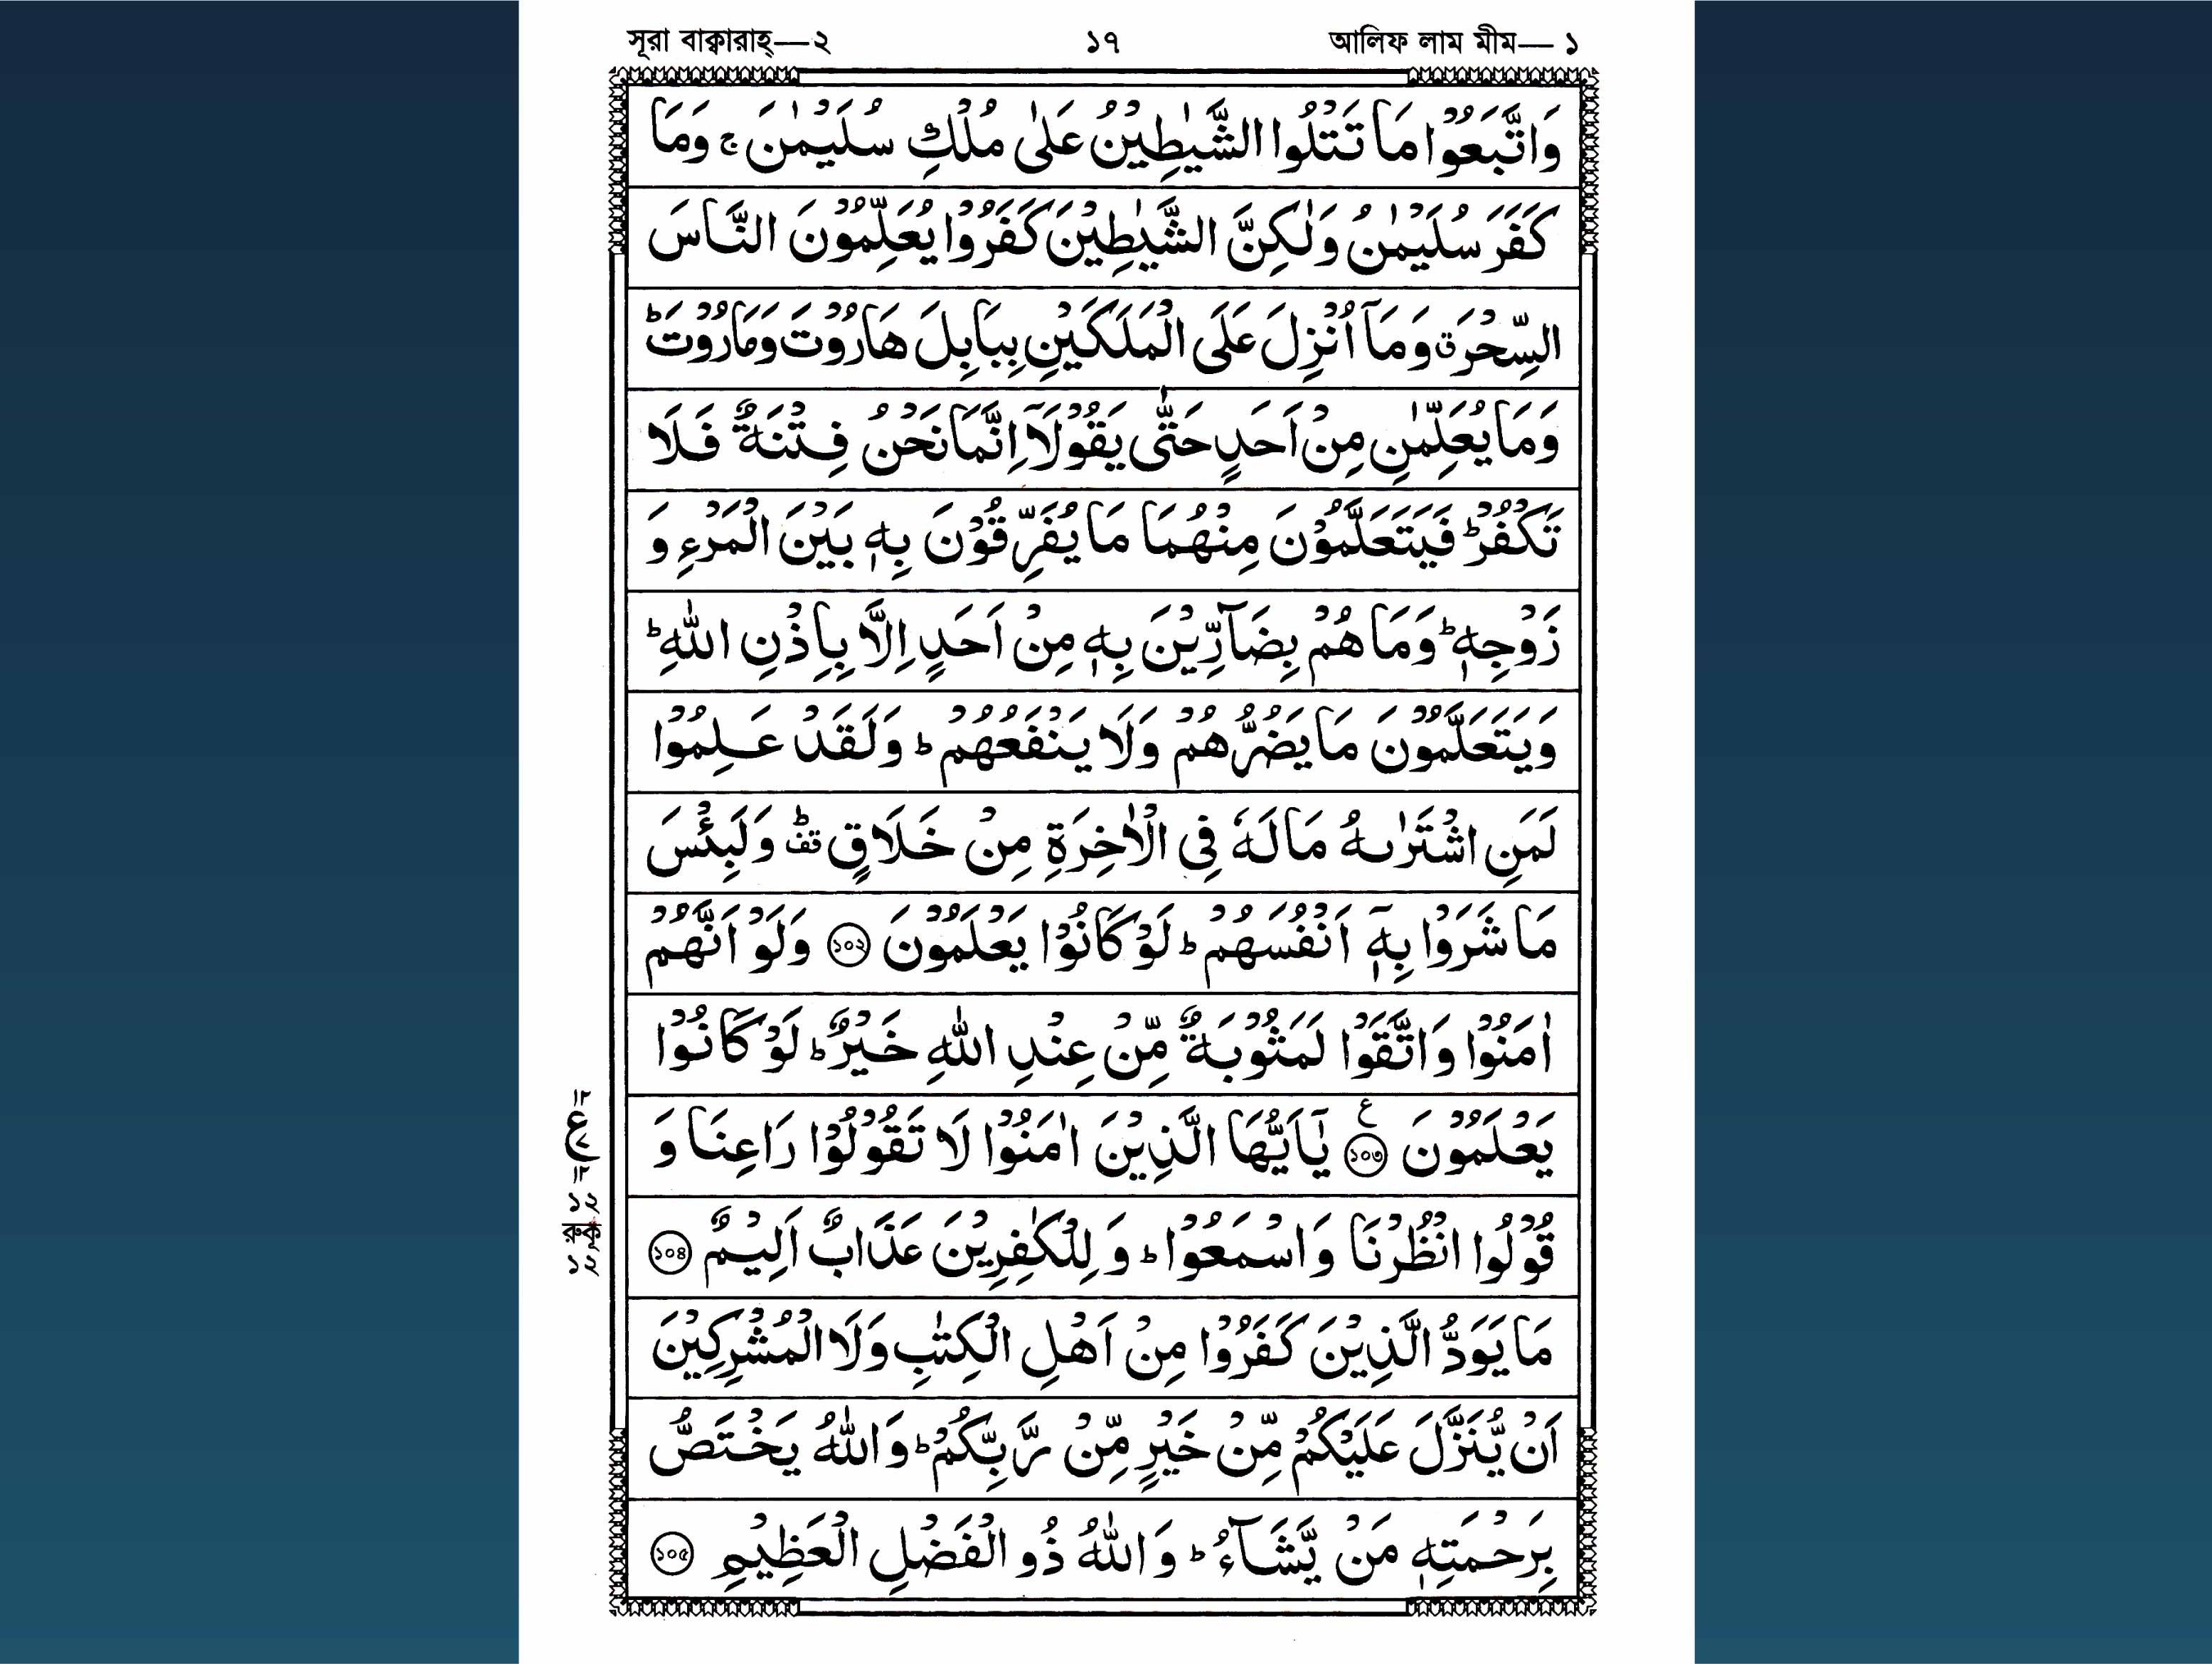 সূরা বাক্বারাহ্—২ ১৭ আলিফ লাম মীম— ১
وَاتَّبَعُوْا مَا تَتْلُوا الشَّيٰطِيْنُ عَلٰى مُلْكِ سُلَيْمٰنَ ۚ وَمَا
كَفَرَ سُلَيْمٰنُ وَلٰكِنَّ الشَّيٰطِيْنَ كَفَرُوْا يُعَلِّمُوْنَ النَّاسَ
السِّحْرَ ۗ وَمَآ اُنْزِلَ عَلَى الْمَلَكَيْنِ بِبَابِلَ هَارُوْتَ وَمَارُوْتَ ؕ
وَمَا يُعَلِّمٰنِ مِنْ اَحَدٍ حَتّٰى يَقُوْلَآ اِنَّمَا نَحْنُ فِتْنَةٌ فَلَا
تَكْفُرْ ؕ فَيَتَعَلَّمُوْنَ مِنْهُمَا مَا يُفَرِّقُوْنَ بِهٖ بَيْنَ الْمَرْءِ وَ
زَوْجِهٖ ؕ وَمَا هُمْ بِضَآرِّيْنَ بِهٖ مِنْ اَحَدٍ اِلَّا بِاِذْنِ اللّٰهِ ؕ
وَيَتَعَلَّمُوْنَ مَا يَضُرُّهُمْ وَلَا يَنْفَعُهُمْ ؕ وَلَقَدْ عَلِمُوْا
لَمَنِ اشْتَرٰىهُ مَا لَهٗ فِى الْاٰخِرَةِ مِنْ خَلَاقٍ ؕ قف وَلَبِئْسَ
مَا شَرَوْا بِهٖٓ اَنْفُسَهُمْ ؕ لَوْ كَانُوْا يَعْلَمُوْنَ ১০২ وَلَوْ اَنَّهُمْ
اٰمَنُوْا وَاتَّقَوْا لَمَثُوْبَةٌ مِّنْ عِنْدِ اللّٰهِ خَيْرٌ ؕ لَوْ كَانُوْا
يَعْلَمُوْنَ ১০৩ ع يٰٓاَيُّهَا الَّذِيْنَ اٰمَنُوْا لَا تَقُوْلُوْا رَاعِنَا وَ
قُوْلُوا انْظُرْنَا وَاسْمَعُوْا ؕ وَلِلْكٰفِرِيْنَ عَذَابٌ اَلِيْمٌ ১০৪
مَا يَوَدُّ الَّذِيْنَ كَفَرُوْا مِنْ اَهْلِ الْكِتٰبِ وَلَا الْمُشْرِكِيْنَ
اَنْ يُّنَزَّلَ عَلَيْكُمْ مِّنْ خَيْرٍ مِّنْ رَّبِّكُمْ ؕ وَاللّٰهُ يَخْتَصُّ
بِرَحْمَتِهٖ مَنْ يَّشَآءُ ؕ وَاللّٰهُ ذُو الْفَضْلِ الْعَظِيْمِ ১০৫